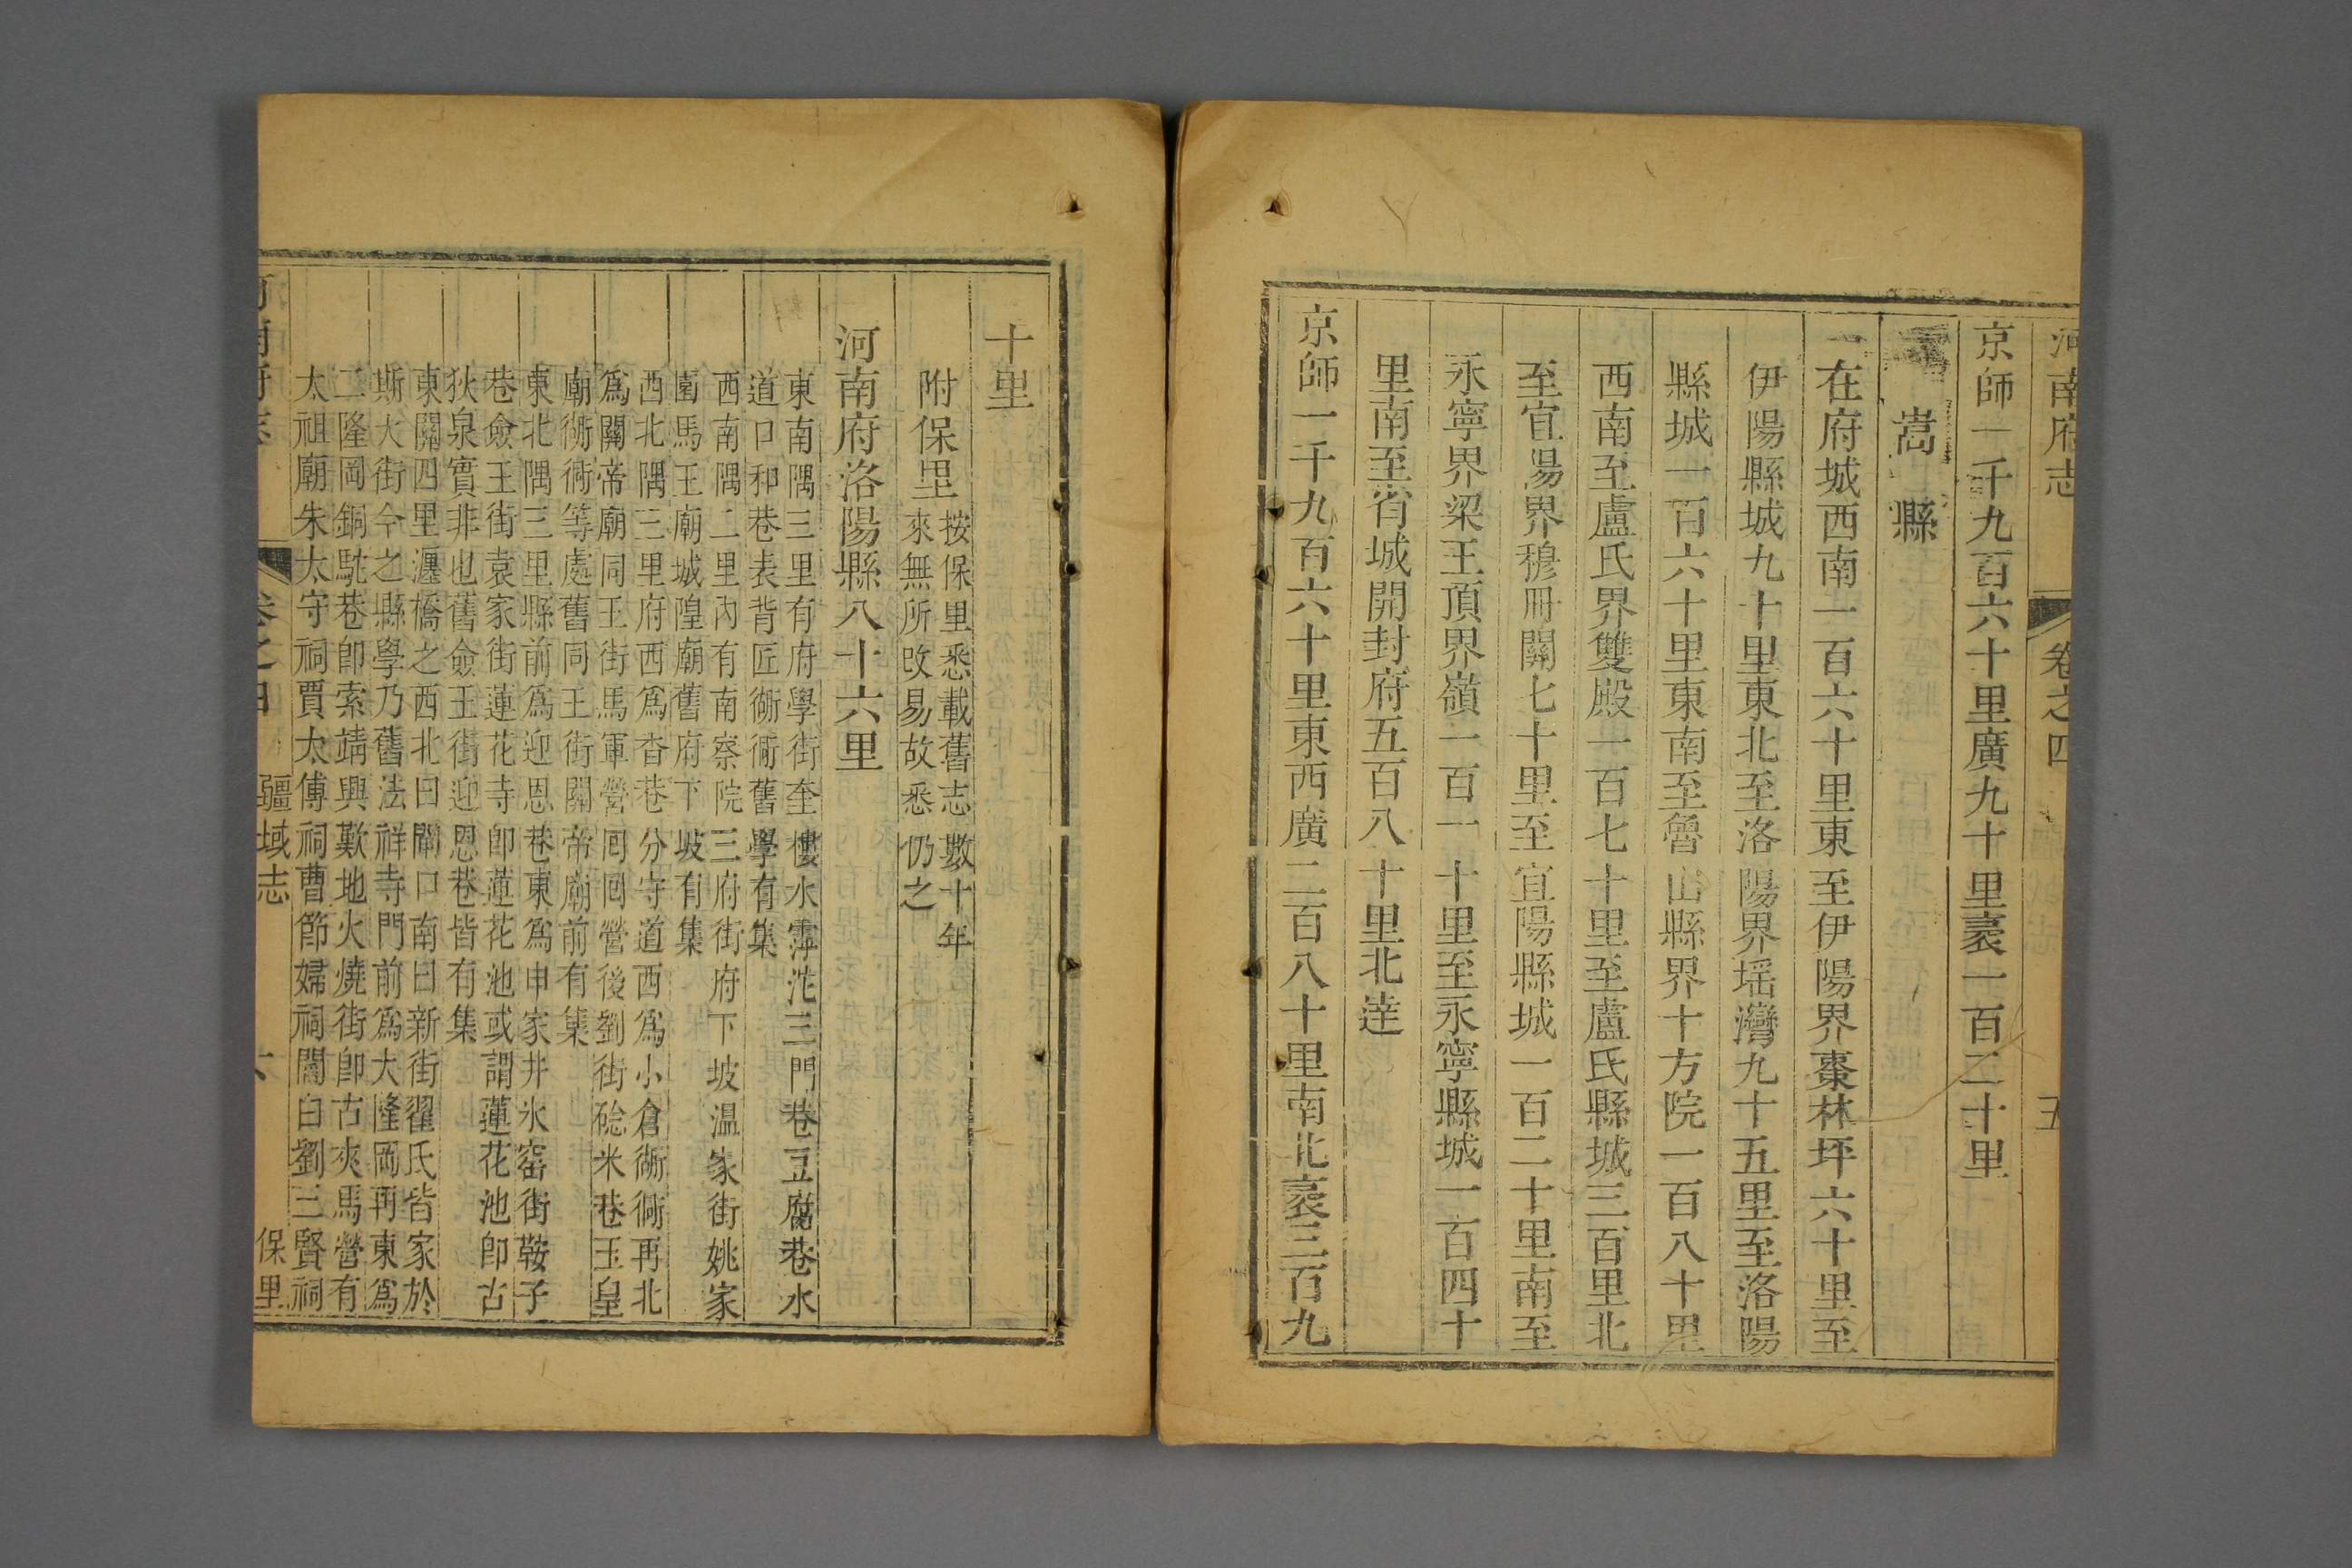 河南府志 卷之四 五
京師一千九百六十里廣九十里袤一百二十里
嵩縣
在府城西南一百六十里東至伊陽界棗林坪六十里至
伊陽縣城九十里東北至洛陽界瑶灣九十五里至洛陽
縣城一百六十里東南至魯山縣界十方院一百八十里
西南至盧氏界雙殿一百七十里至盧氏縣城三百里北
至宜陽界穆冊關七十里至宜陽縣城一百二十里南至
永寧界梁王頂界嶺一百一十里至永寧縣城一百四十
里南至省城開封府五百八十里北達
京師一千九百六十里東西廣二百八十里南北袤三百九
十里
附保里
按保里悉載舊志數十年
來無所改易故悉仍之
河南府洛陽縣八十六里
東南隅三里有府學街奎樓水霈沱三門巷豆腐巷水
道口和巷表背匠衚衕舊學有集
西南隅二里內有南察院三府街府下坡温家街姚家
園馬王廟城隍廟舊府下坡有集
西北隅三里府西爲杏巷分守道西爲小倉衚衕再北
爲關帝廟同王街馬軍營回回營後劉街碗米巷玉皇
廟衚衕等處舊同王街關帝廟前有集
東北隅三里縣前爲迎恩巷東爲申家井氷窑街鞍子
巷僉王街袁家街蓮花寺卽蓮花池或謂蓮花池卽古
狄泉實非也舊僉王街迎恩巷皆有集
東關四里瀍橋之西北曰閘口南曰新街翟氏皆家於
斯大街今之縣學乃舊法祥寺門前爲大隆岡再東爲
二隆岡銅駝巷卽索靖興歎地火燒街卽古夾馬營有
太祖廟朱太守祠賈太傅祠曹節婦祠關臼劉三賢祠
河南府志 卷之四 疆域志 六 保里